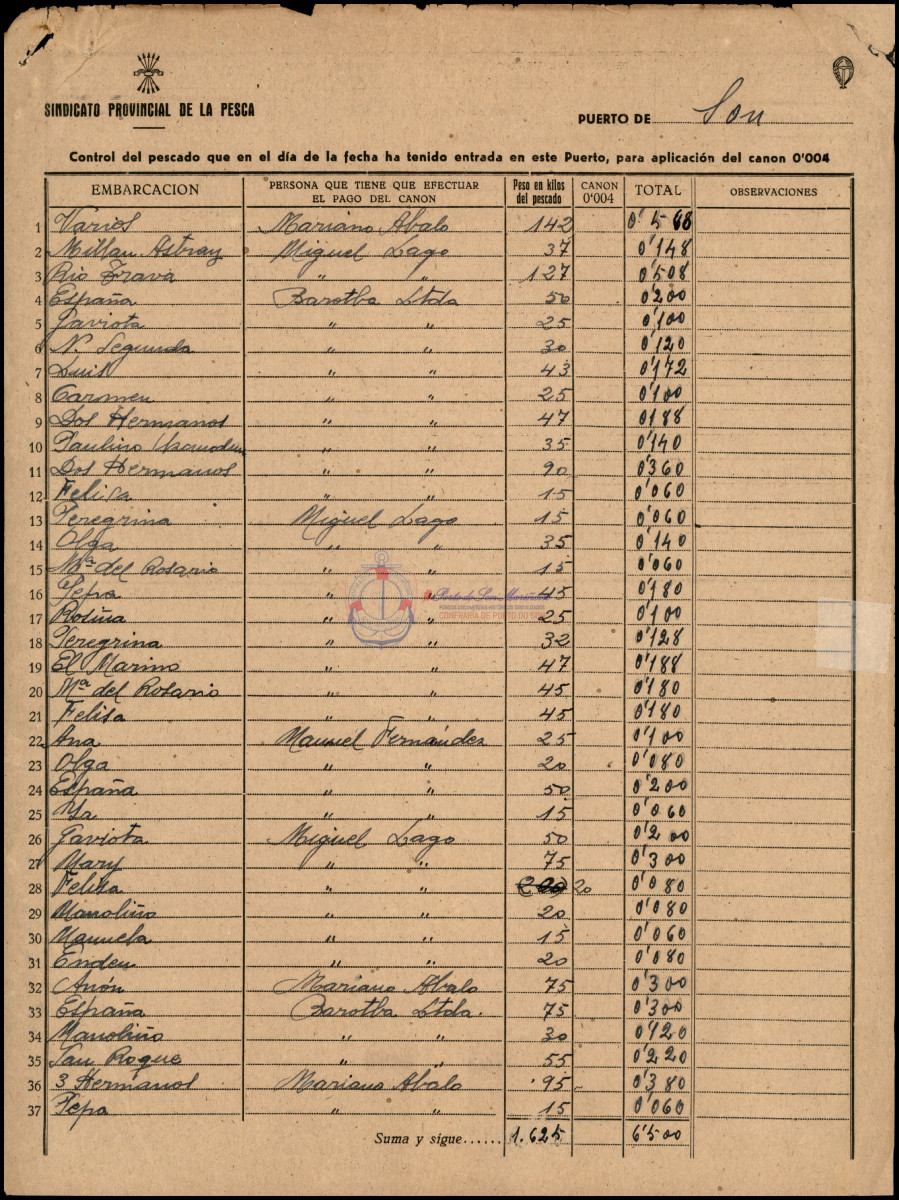 SINDICATO PROVINCIAL DE LA PESCA
PUERTO DE Son
Control del pescado que en el día de la fecha ha tenido entrada en este Puerto, para aplicación del canon 0'004
EMBARCACION PERSONA QUE TIENE QUE EFECTUAR EL PAGO DEL CANON Peso en kilos del pescado CANON 0'004 TOTAL OBSERVACIONES
1 Varios Mariano Abalo 142 0'568
2 Millan Astray Miguel Lago 37 0'148
3 Rio Trava " " 127 0'508
4 España Barotba Ltda 50 0'200
5 Gaviota " " 25 0'100
6 N. Segunda " " 30 0'120
7 Luis " " 43 0'172
8 Carmen " " 25 0'100
9 Dos Hermanos " " 47 0188
10 Paulino " " 35 0'140
11 Dos Hermanos " " 90 0'360
12 Felisa " " 15 0'060
13 Peregrina Miguel Lago 15 0'060
14 Olga " " 35 0'140
15 Mª del Rosario " " 15 0'060
16 Pepa " " 45 0'180
17 Rosiña " " 25 0'100
18 Peregrina " " 32 0'128
19 El Marino " " 47 0'188
20 Mª del Rosario " " 45 0'180
21 Felisa " " 45 0'180
22 Ana Manuel Fernández 25 0'100
23 Olga " " 20 0'080
24 España " " 50 0'200
25 " " 15 0'060
26 Gaviota Miguel Lago 50 0'200
27 Mary " " 75 0'300
28 Felisa " " 20 0'080
29 Manoliño " " 20 0'080
30 Manuela " " 15 0'060
31 Enden " " 20 0'080
32 Anón Mariano Abalo 75 0'300
33 España Barotba Ltda. 75 0'300
34 Manoliño " " 30 0'120
35 San Roque " " 55 0'220
36 3 Hermanos Mariano Abalo 95 0'380
37 Pepa " " 15 0'060
Suma y sigue...... 1.625 6'500
CONFRARÍA DE PORTO DO SON